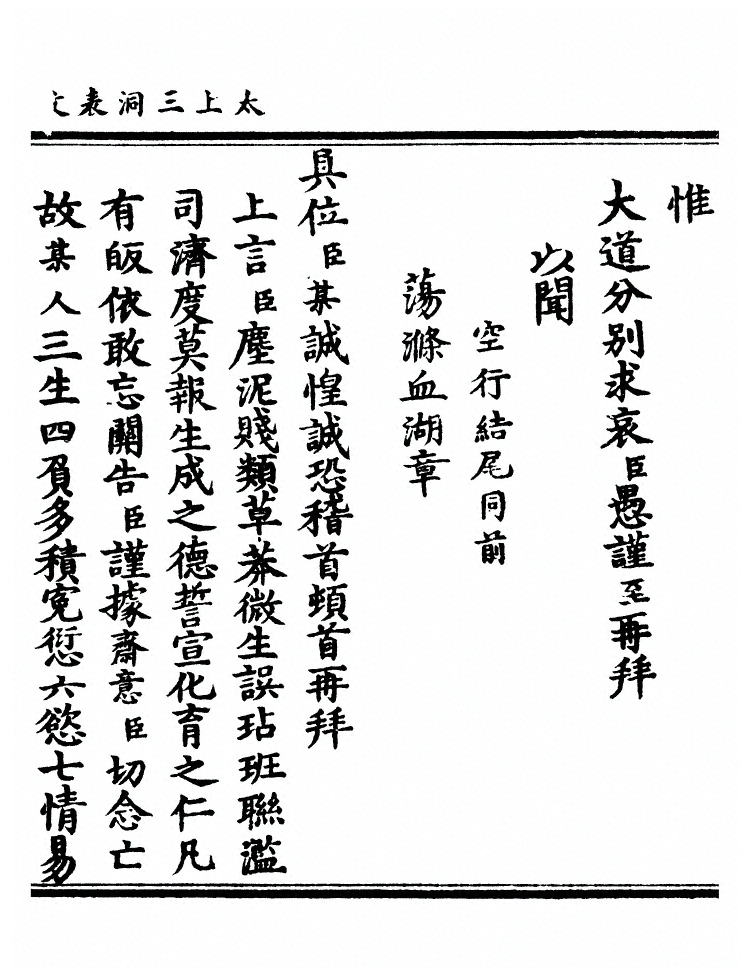 太上三洞表文
惟
大道分別求哀臣愚謹至再拜
以聞
空行結尾同前
蕩滌血湖章
具位臣某誠惶誠恐稽首頓首再拜
上言臣塵泥賤類草莽微生誤玷班聯濫
司濟度莫報生成之德誓宣化育之仁凡
有皈依敢忘關告臣謹據齋意臣切念亡
故某人三生四負多積冤愆六慾七情易